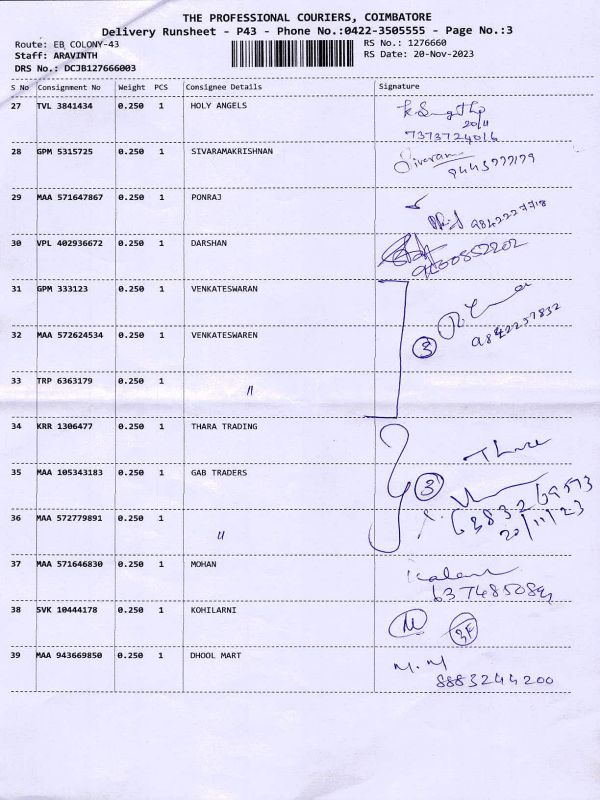 THE PROFESSIONAL COURIERS, COIMBATORE
Delivery Runsheet - P43 - Phone No.:0422-3505555 - Page No.:3
Route: EB COLONY-43 RS No.: 1276660
Staff: ARAVINTH RS Date: 20-Nov-2023
DRS No.: DCJB127666003
S No Consignment No Weight PCS Consignee Details Signature
27 TVL 3841434 0.250 1 HOLY ANGELS
20/11
7373724016
28 GPM 5315725 0.250 1 SIVARAMAKRISHNAN Sivaram
29 MAA 571647867 0.250 1 PONRAJ
9842227718
30 VPL 402936672 0.250 1 DARSHAN
31 GPM 333123 0.250 1 VENKATESWARAN
32 MAA 572624534 0.250 1 VENKATESWAREN 3 9842237832
33 TRP 6363179 0.250 1 "
34 KRR 1306477 0.250 1 THARA TRADING
35 MAA 105343183 0.250 1 GAB TRADERS 3
36 MAA 572779891 0.250 1 "
20/11/23
37 MAA 571646830 0.250 1 MOHAN
38 SVK 10444178 0.250 1 KOHILARNI
39 MAA 943669850 0.250 1 DHOOL MART M.M
8883244200